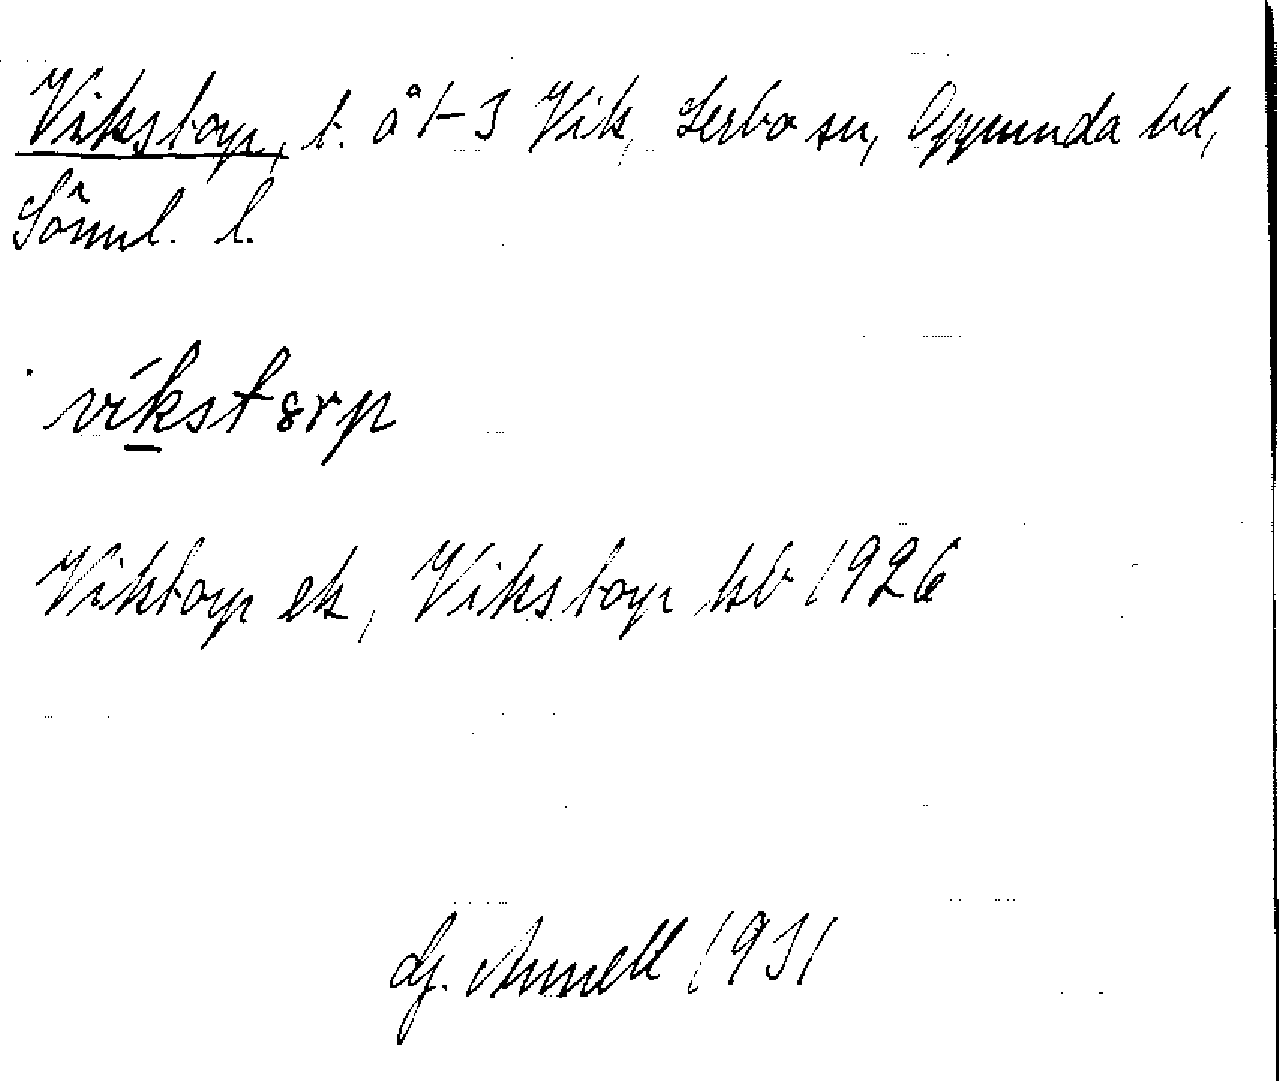 Vikstorp, t. å 1-3 Vik, Lerbo sn, Oppunda hd,
Söml. l.
víkstorp
Viktorp ek, Vikstorp kb 1926
Hj. Annell 1931